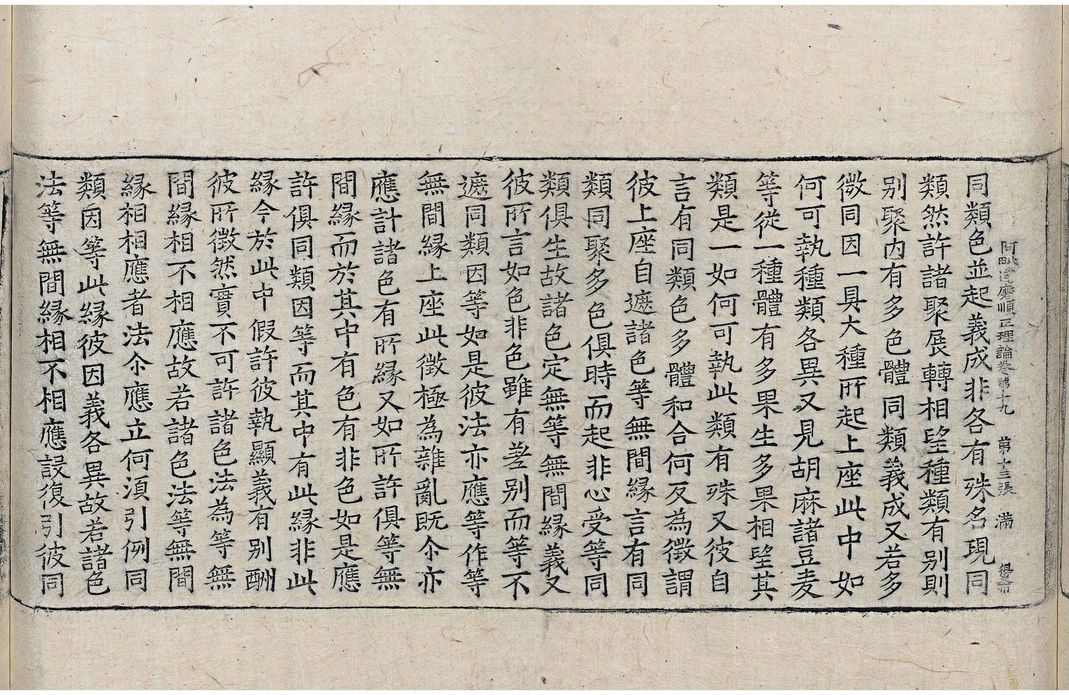 阿毗達磨順正理論卷第十九 第十三張 滿
同類色並起義成非各有殊名現同
類然許諸聚展轉相望種類有別則
別聚內有多色體同類義成又若多
微同因一具大種所起上座此中如
何可執種類各異又見胡麻諸豆麦
等從一種體有多果生多果相望其
類是一如何可執此類有殊又彼自
言有同類色多體和合何反為徵謂
彼上座自遮諸色等無間緣言有同
類同聚多色俱時而起非心受等同
類俱生故諸色定無等無間緣義又
彼所言如色非色雖有差別而等不
遮同類因等如是彼法亦應等作等
無間緣上座此徵極為雜亂既尒亦
應計諸色有所緣又如所許俱等無
間緣而於其中有色有非色如是應
許俱同類因等而其中有此緣非此
緣今於此中假許彼執顯義有別酬
彼所徵然實不可許諸色法為等無
間緣相不相應故若諸色法等無間
緣相相應者法尒應立何湏引例同
類因等此緣彼因義各異故若諸色
法等無間緣相不相應設復引彼同